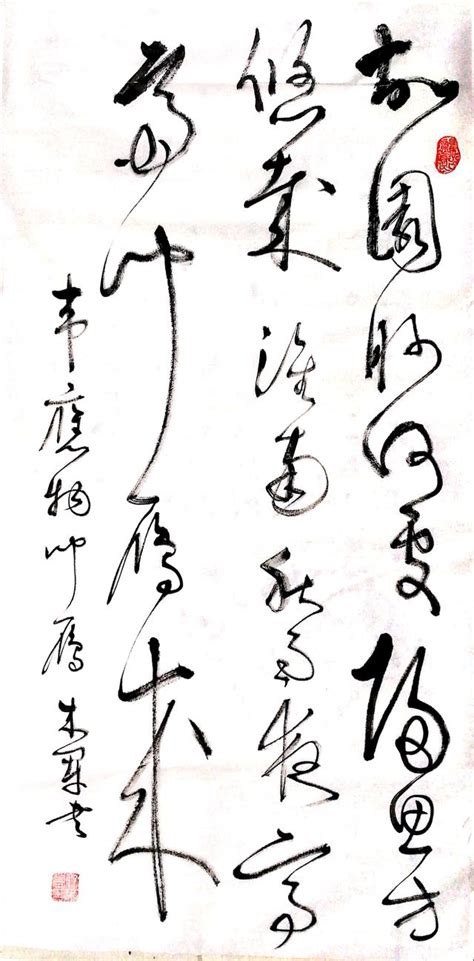 故園眇何處歸思方
悠哉淮南秋雨夜高
齋聞雁來
韋應物聞雁 木 書